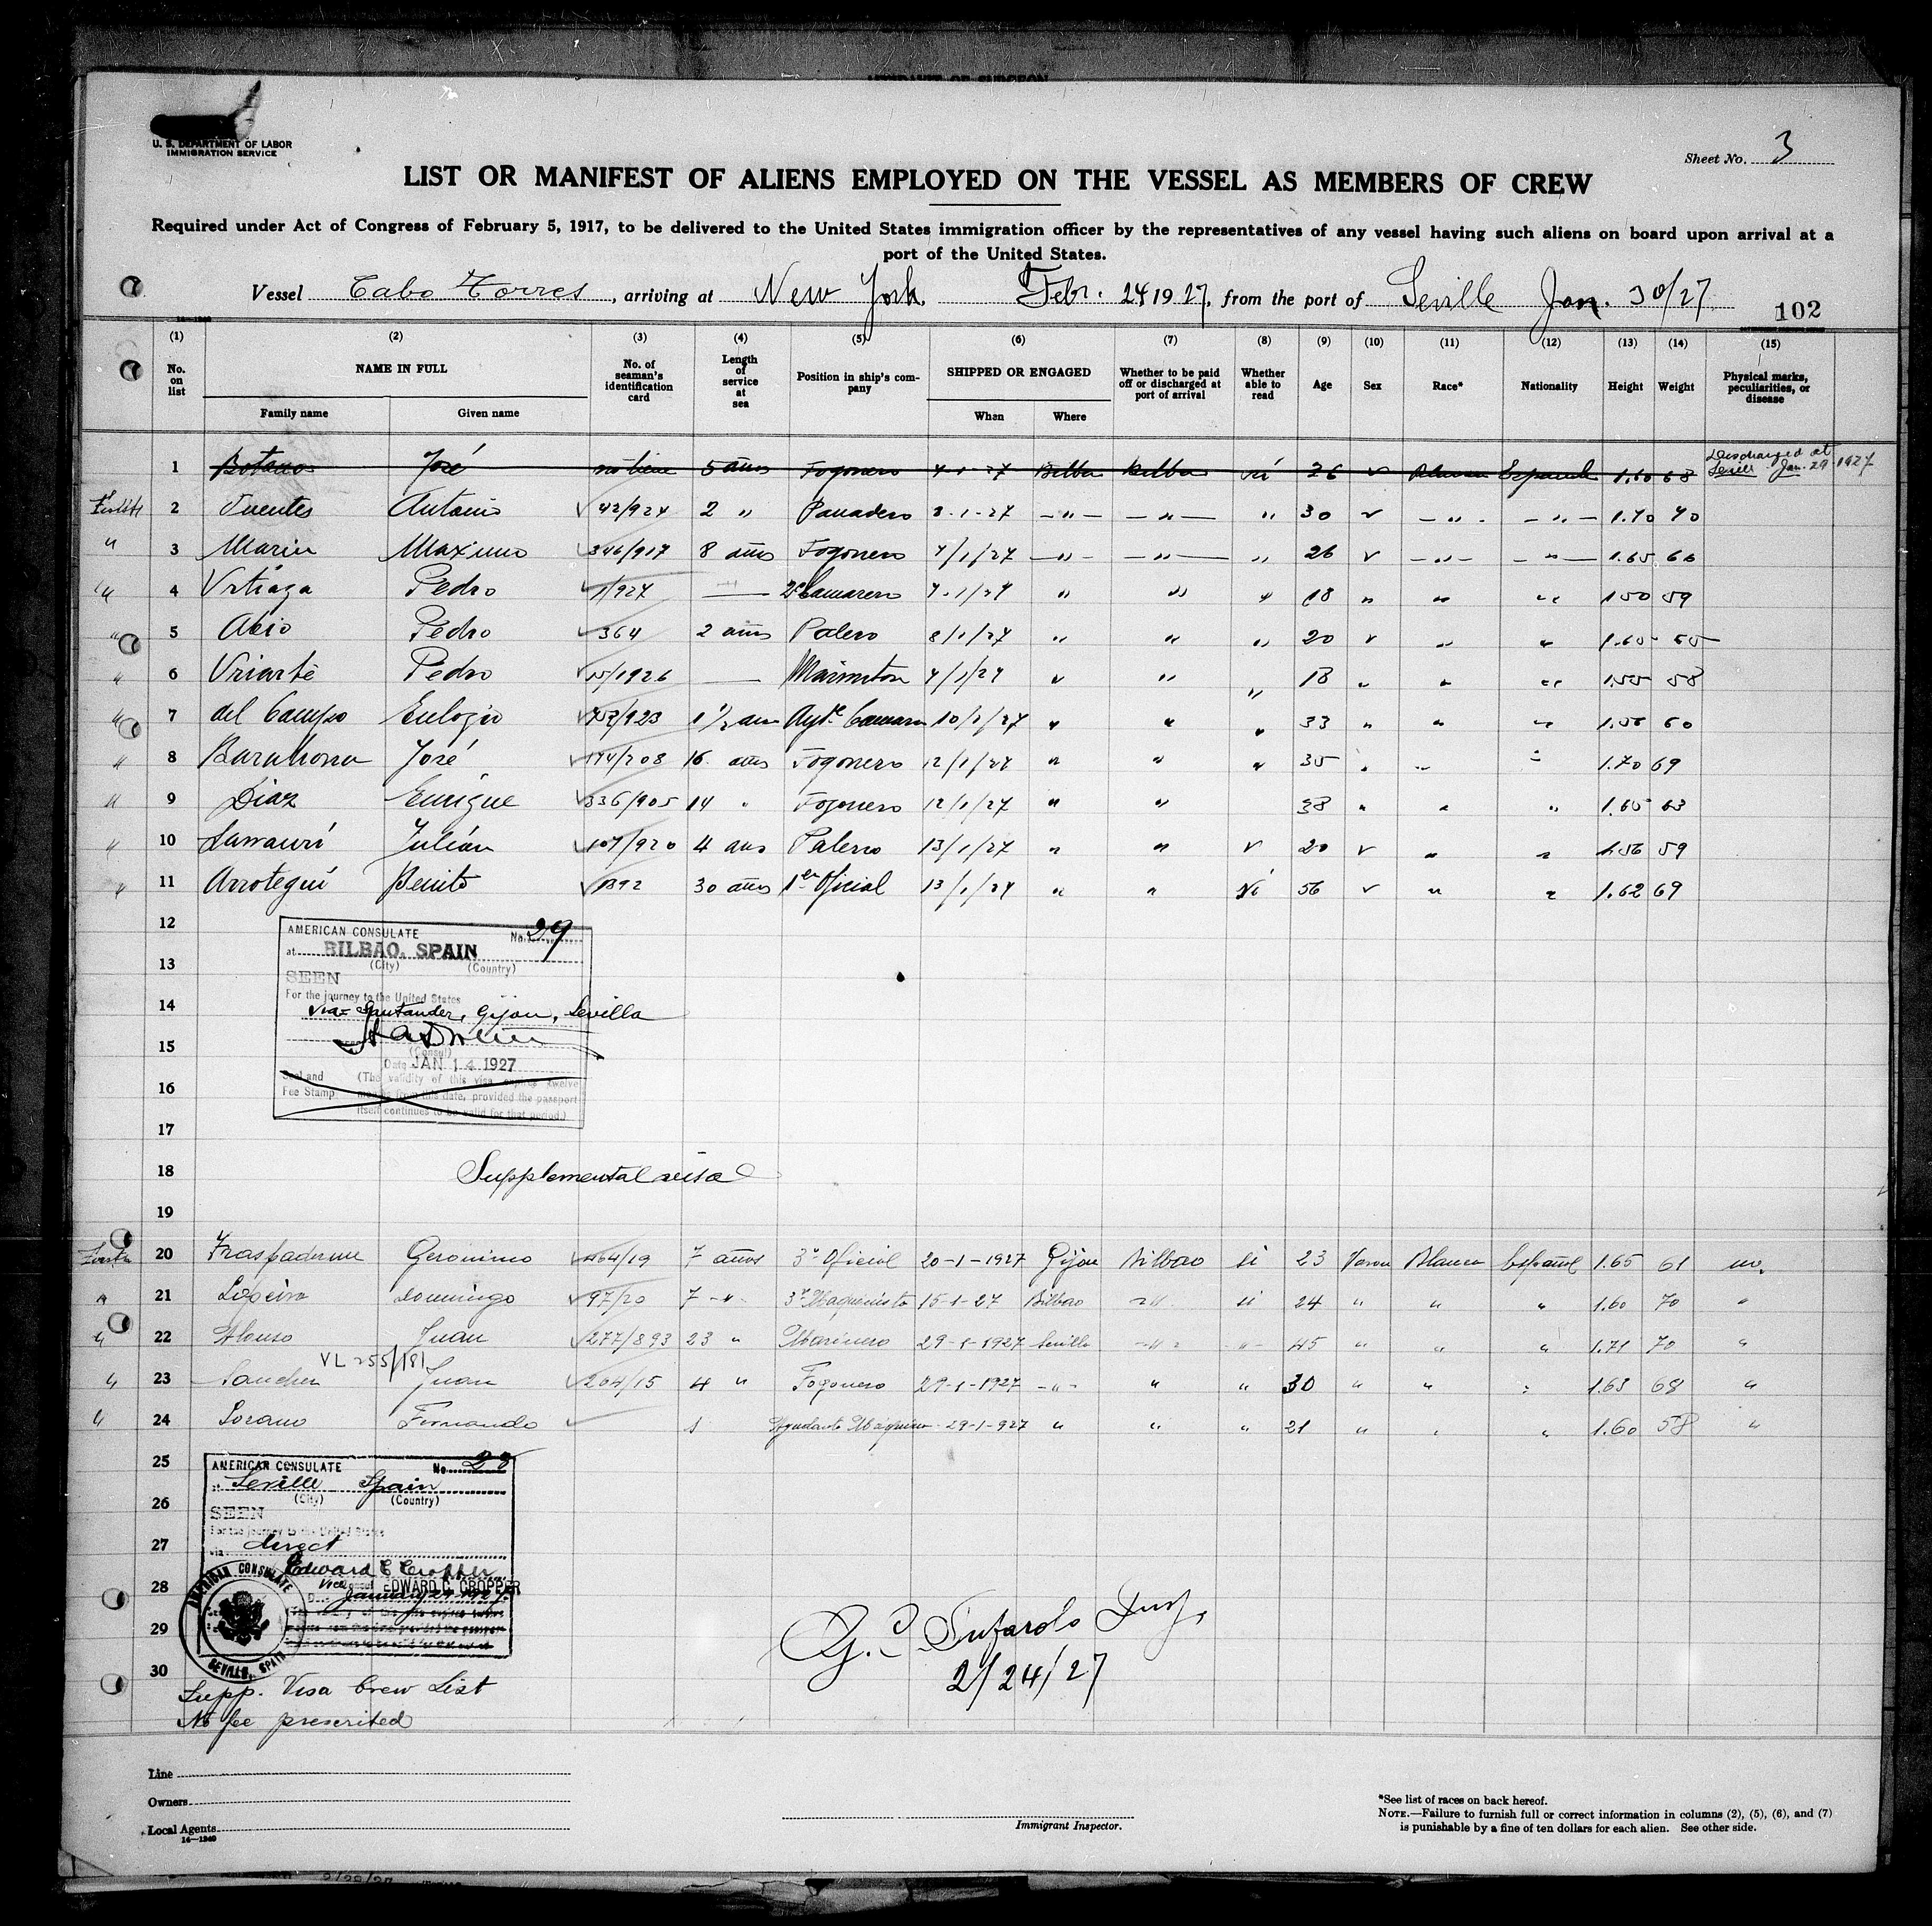 U. S. DEPARTMENT OF LABOR
IMMIGRATION SERVICE
Sheet No. 3
LIST OR MANIFEST OF ALIENS EMPLOYED ON THE VESSEL AS MEMBERS OF CREW
Required under Act of Congress of February 5, 1917, to be delivered to the United States immigration officer by the representatives of any vessel having such aliens on board upon arrival at a
port of the United States.
Vessel Cabo Torres, arriving at New York, Febr. 24 1927, from the port of Seville Jan. 30/27
102
14—1240
(1) (2) (3) (4) (5) (6) (7) (8) (9) (10) (11) (12) (13) (14) (15)
No. on list NAME IN FULL Family name Given name No. of seaman's identification card Length of service at sea Position in ship's company SHIPPED OR ENGAGED When Where Whether to be paid off or discharged at port of arrival Whether able to read Age Sex Race* Nationality Height Weight Physical marks, peculiarities, or disease
1 José no tiene 5 años Fogonero 4-1-27 Bilbao Bilbao si 26 1.60 68 Discharged at Seville Jan. 29 1927
2 Fuentes Antonio 42/924 2 " Panadero 3-1-27 —"— —"— " 30 —"— —"— 1.70 70
3 Marin Maximo 346/917 8 años Fogonero 7/1/27 —"— —"— " 26 —"— —"— 1.65 66
" 4 Urtiaga Pedro 1/927 — 2º Camarero 7-1/27 " " " 18 " " " 150 59
" 5 Pedro 364 2 años Palero 8/1/27 " " " 20 " " 1.65
" 6 Uriarte Pedro 15/1926 — Marmiton 7/1/27 " " 18 " " " 1.55 58
" 7 del Campo Eulogio 1 1/2 Camarero 10/1/27 " " " 33 " " " 1.56 60
" 8 Barahona José 16 años Fogonero 12/1/27 " " " 35 " " 1.70 69
" 9 Diaz Enrique 336/905 14 " Fogonero 12/1/27 " " 38 " " " 1.65 63
" 10 Larrauri Julián 107/920 4 años Palero 13/1/27 " " 20 " " 1.56 59
" 11 Arrotegui Benito 1892 30 años 1er Oficial 13/1/27 " " si 56 " " 1.62 69
12
AMERICAN CONSULATE No. 29
at BILBAO, SPAIN
(City) (Country)
13
SEEN
For the journey to the United States
14
via Santander, Gijon, Sevilla
15
(Consul)
Date JAN 14 1927
16
Seal and Fee Stamp (The validity of this visa expires twelve months from this date, provided the passport itself continues to be valid for that period.)
17
18
Supplemental visa
19
20 Geronimo 464/19 7 años 3r Oficial 20-1-1927 Gijon Bilbao si 23 Varon Blanca Español 1.65 61 no.
" 21 Domingo 97/20 7 -"- 3r Maquinista 15-1-27 Bilbao -"- si 24 " " " 1.60 70 "
" 22 Alonso Juan 277/893 23 " Marinero 29-1-1927 Sevilla -"- -"- 45 " " " 1.71 70 "
VL 255/181
" 23 Sanchez Juan 204/15 4 " Fogonero 29-1-1927 -"- " " 30 " " " 1.63 68 "
" 24 Fernando 29-1-927 " " " 21 " " " 1.60 58 "
25
AMERICAN CONSULATE No. 28
at Seville Spain
(City) (Country)
26
SEEN
For the journey to the United States
27
via direct
Edward C Cropper
Vice Consul EDWARD C. CROPPER
28
AMERICAN CONSULATE
SEVILLE, SPAIN
29
30
2/24/27
Supp. Visa Crew List
No fee prescribed
Line
Owners
Local Agents
14—1240
Immigrant Inspector.
*See list of races on back hereof.
NOTE.—Failure to furnish full or correct information in columns (2), (5), (6), and (7)
is punishable by a fine of ten dollars for each alien. See other side.